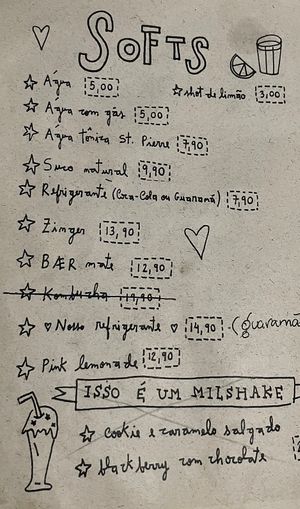 SOFTS
Agua 5,00
shot de limão 3,00
Agua com gás 5,00
Agua tônica St. Pierre 7,90
Suco natural 9,90
Refrigerante (Coca-Cola ou Guaraná) 7,90
Zinger 13,90
BÆR mate 12,90
Kombucha 19,90
Nosso refrigerante 14,90 (guaraná
Pink lemonade 12,90
ISSO É UM MILSHAKE
cookie e caramelo salgado
blackberry com chocolate